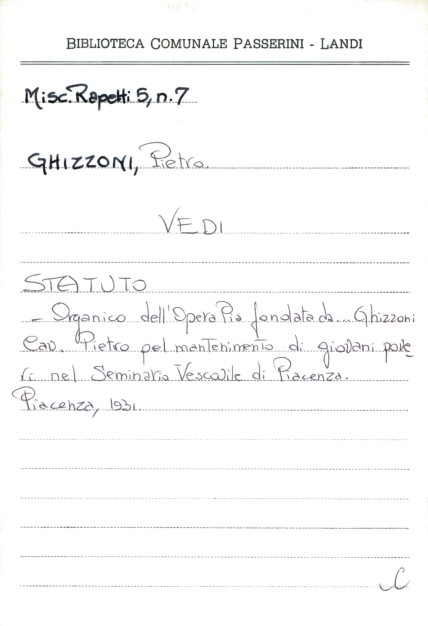 BIBLIOTECA COMUNALE PASSERINI - LANDI
Misc. Rapetti 5, n. 7
GHIZZONI, Pietro.
VEDI
STATUTO
- Organico dell'Opera Pia fondata da... Ghizzoni
Cav. Pietro pel mantenimento di giovani pove
ri nel Seminario Vescovile di Piacenza.
Piacenza, 1931.